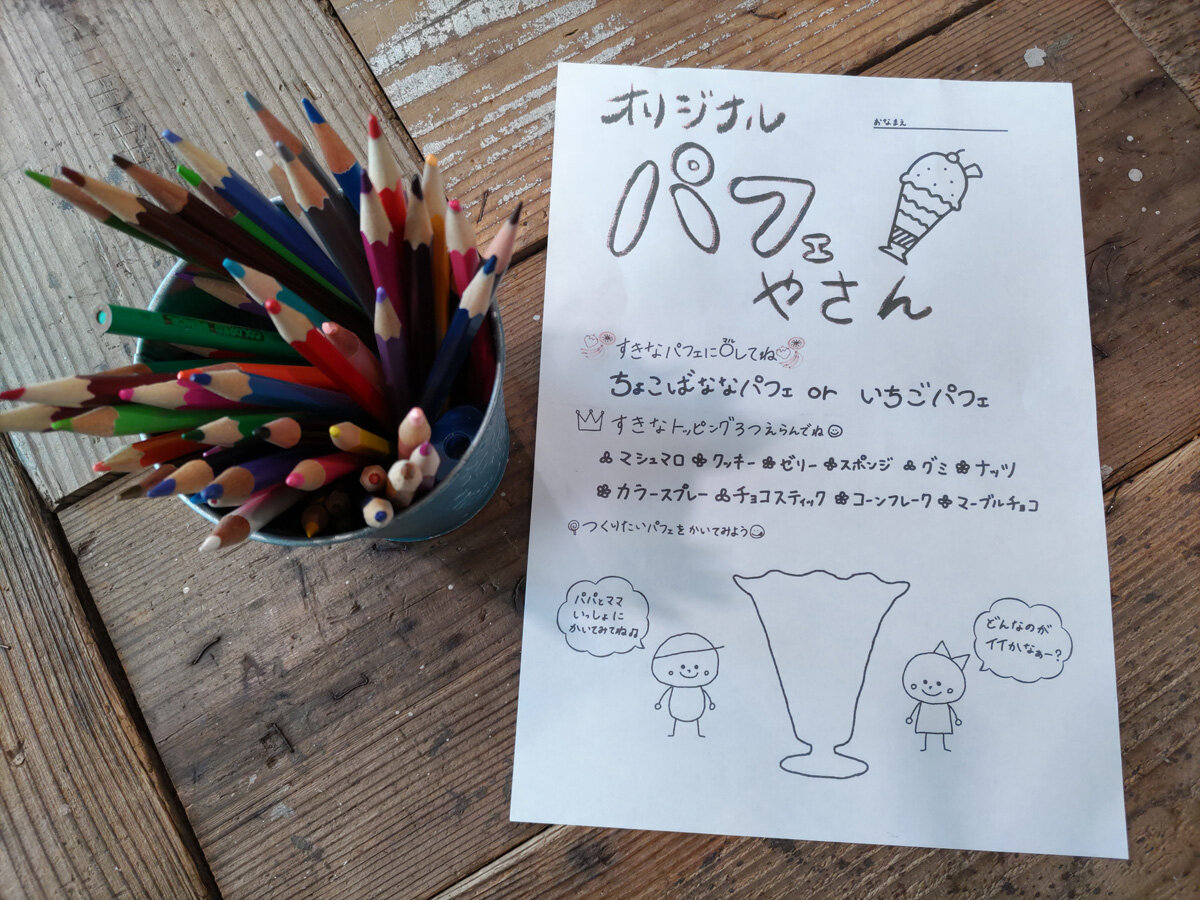 オリジナル
おなまえ
パフェ
やさん
すきなパフェに○してね
マル
ちょこばななパフェ or いちごパフェ
すきなトッピング3つえらんでね
マシュマロ クッキー ゼリー スポンジ グミ ナッツ
カラースプレー チョコスティック コーンフレーク マーブルチョコ
つくりたいパフェをかいてみよう
パパとママ
いっしょに
かいてみてね♫
どんなのが
イイかなぁー?
COLORED